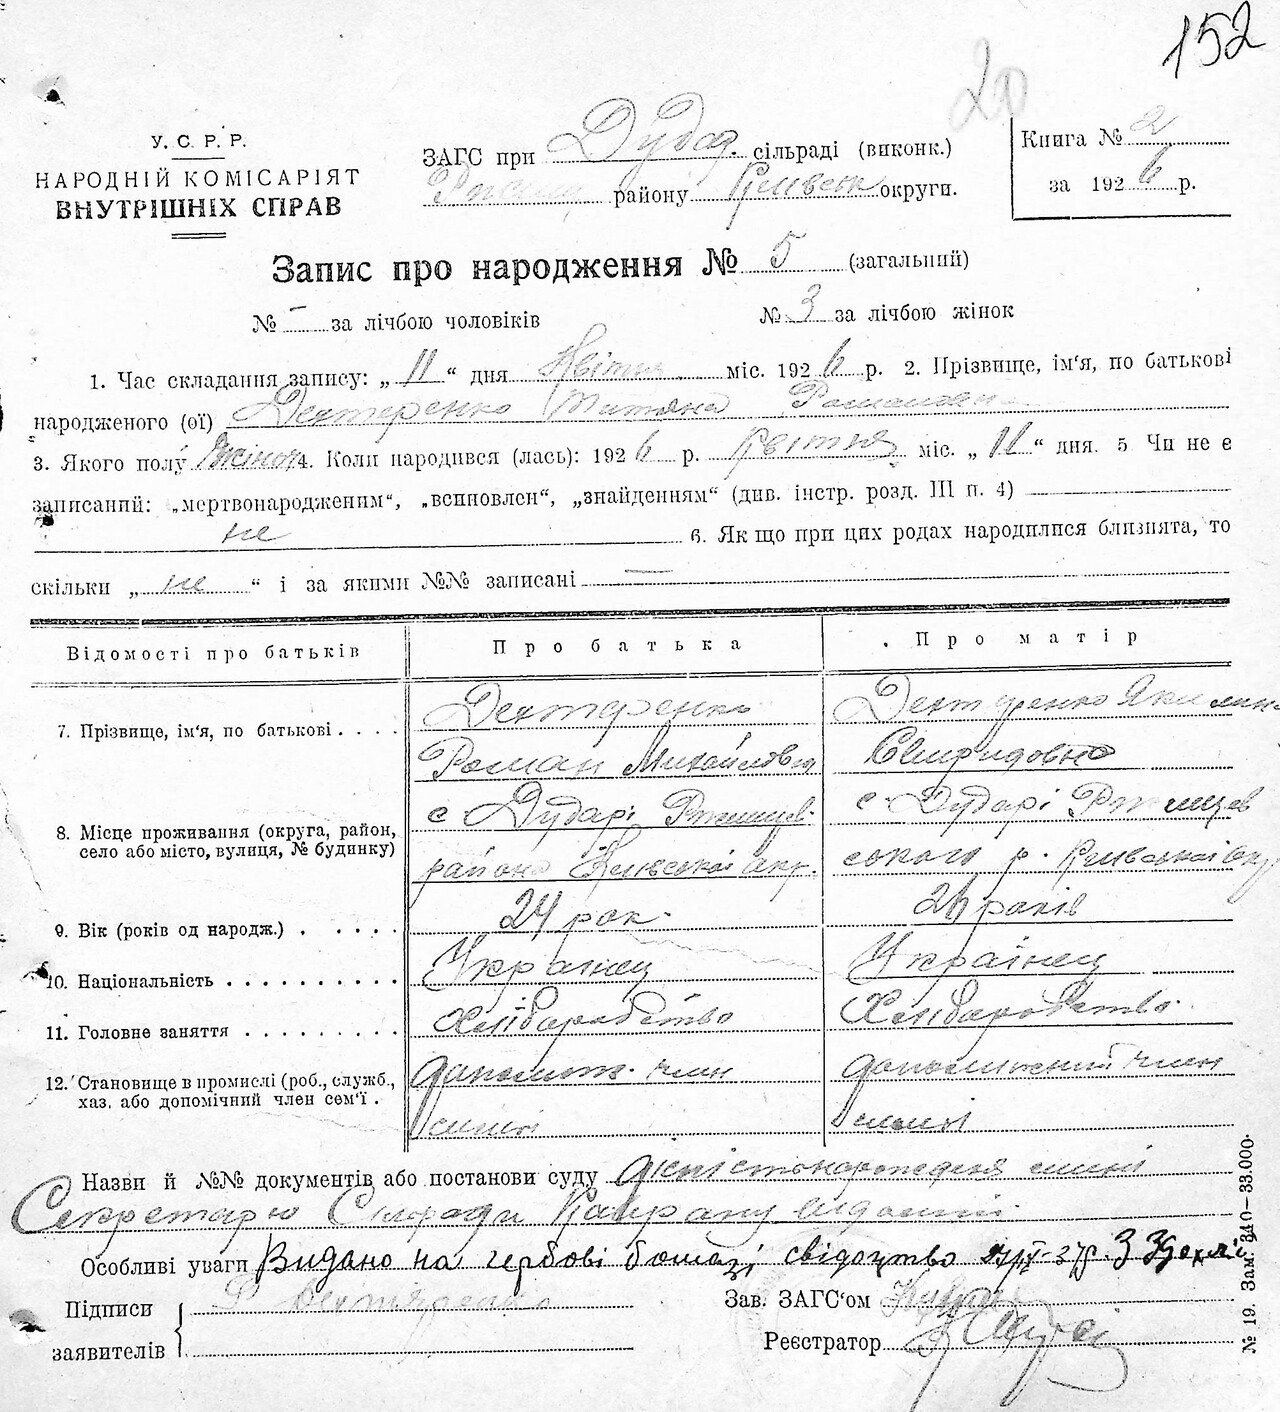 152
20
У. С. Р. Р.
НАРОДНІЙ КОМІСАРІЯТ
ВНУТРІШНІХ СПРАВ
ЗАГС при Дудар. сільраді (виконк.)
району Київськ округи.
Книга № 2
за 1926 р.
Запис про народження № 5 (загальний)
№ - за лічбою чоловіків № 3 за лічбою жінок
1. Час складання запису: „ 11 “ дня Квітня міс. 1926 р. 2. Прізвище, ім'я, по батькові
народженого (ої) Дехтеренко Титяна Романовна
3. Якого полу Жіноч 4. Коли народився (лась): 1926 р. Квітня міс. „ 11 “ дня. 5 Чи не є
записаний: „мертвонародженим“, „всиновлен“, „знайденням“ (див. інстр. розд. III п. 4)
не 6. Як що при цих родах народилися близнята, то
скільки „ не “ і за якими №№ записані —
Відомості про батьків Про батька Про матір
7. Прізвище, ім'я, по батькові . . . . Дехтеренко Дехтеренко Якилина
Роман Михайлович Спиридовно
8. Місце проживання (округа, район, с Дударі Ржищев. с. Дударі Ржищев
село або місто, вулиця, № будинку) району Київської окр. ського р. Київської окр
9. Вік (років од народж.) . . . . . 24 рок. 26 років
10. Національність . . . . . . . . . . Українец Українец
11. Головне заняття . . . . . . . . . Хліборобство Хліборобство
12. Становище в промислі (роб., служб., допомож. член допоможний член
хаз. або допомічний член сем'ї . сімї сімї
Назви й №№ документів або постанови суду
Секретарю Сілради
Особливі уваги Видано на гербові бомазі свідоцтво
Підписи
заявителів
Зав. ЗАГС'ом
Реєстратор
№ 19. Зам. 340—33.000.